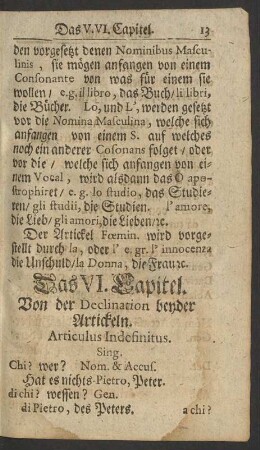 Das V. VI. Capitel. 13
den vorgesetzt denen Nominibus Mascu-
linis, sie mögen anfangen von einem
Consonante von was für einem sie
wollen/ e.g. il libro, das Buch/ li libri,
die Bücher. Lo, und L', werden gesetzt
vor die Nomina Masculina, welche sich
anfangen von einem S. auf welches
noch ein anderer Cosonans folget/ oder
vor die/ welche sich anfangen von ei-
nem Vocal, wird alsdann das O apo-
strophiret/ e. g. lo studio, das Studie-
ren/ gli studii, die Studien. l'amore,
die Lieb/ gli amori, die Lieben/ꝛc.
Der Artickel Fœmin. wird vorge-
stellt durch la, oder l' e. gr. l' innocenza
die Unschuld/ la Donna, die Frauꝛc.
Das VI. Capitel.
Von der Declination beyder
Artickeln.
Articulus Indefinitus.
Sing.
Chi? wer? Nom. & Accus.
Hat es nichts-Pietro, Peter.
di chi? wessen? Gen.
di Pietro, des Peters. a chi?